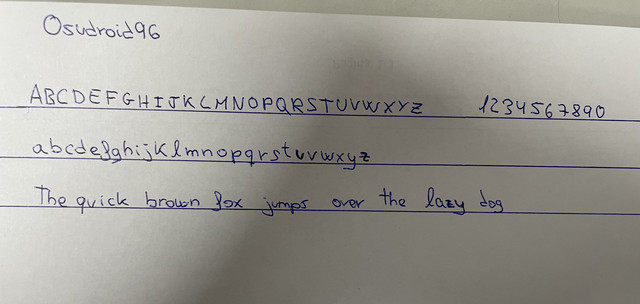 Osudroid96
ABCDEFGHIJKLMNOPQRSTUVWXYZ 1234567890
abcdefghijklmnopqrstuvwxyz
The quick brown fox jumps over the lazy dog